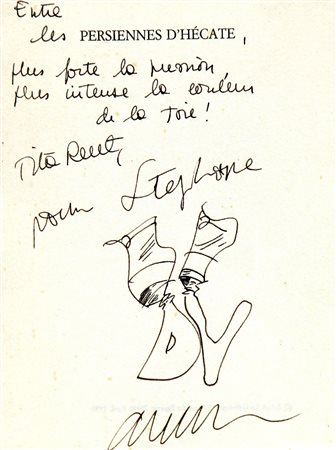 Entre
les PERSIENNES D'HÉCATE,
plus forte la pression,
plus intense la couleur
de la Joie !
Tita Reut
pour Stephane
DV